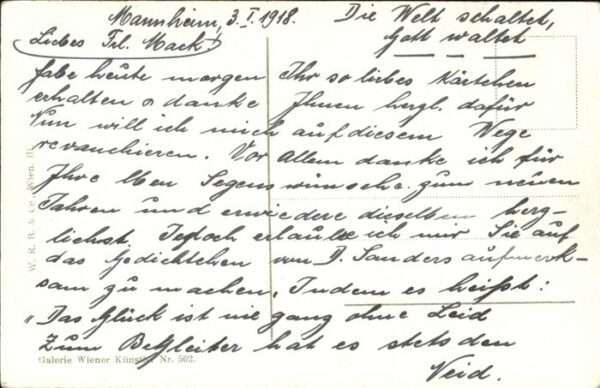 Mannheim, 3. I. 1918.
Die Welt schaltet,
Gott waltet
Liebes Frl. Mack!
habe heute morgen Ihr so liebes Kärtchen
erhalten & danke Ihnen herzl. dafür
Nun will ich mich auf diesem Wege
revanchieren. Vor Allem danke ich für
Ihre lben Segenswünsche zum neuen
Jahren und erwiedere dieselben herz-
lichst. Jedoch erlaube ich mir Sie auf
das Gedichtchen von D. Sanders aufmerk-
sam zu machen, Indem es heißt:
"Das Glück ist nie ganz ohne Leid
Zum Begleiter hat es stets den
Neid.
Galerie Wiener Künstler Nr. 502.
W. R. B. & Co., Wien, III.